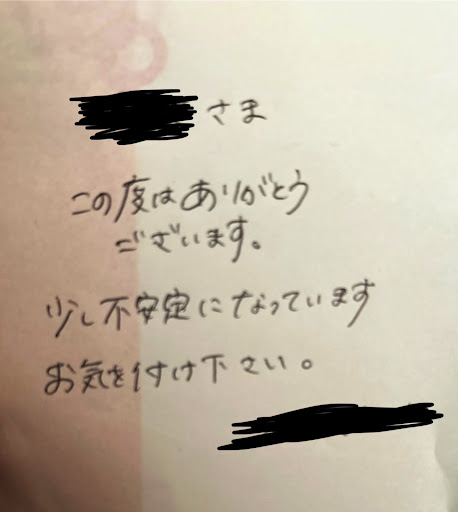 さま
この度はありがとう
ございます。
少し不安定になっています
お気を付け下さい。